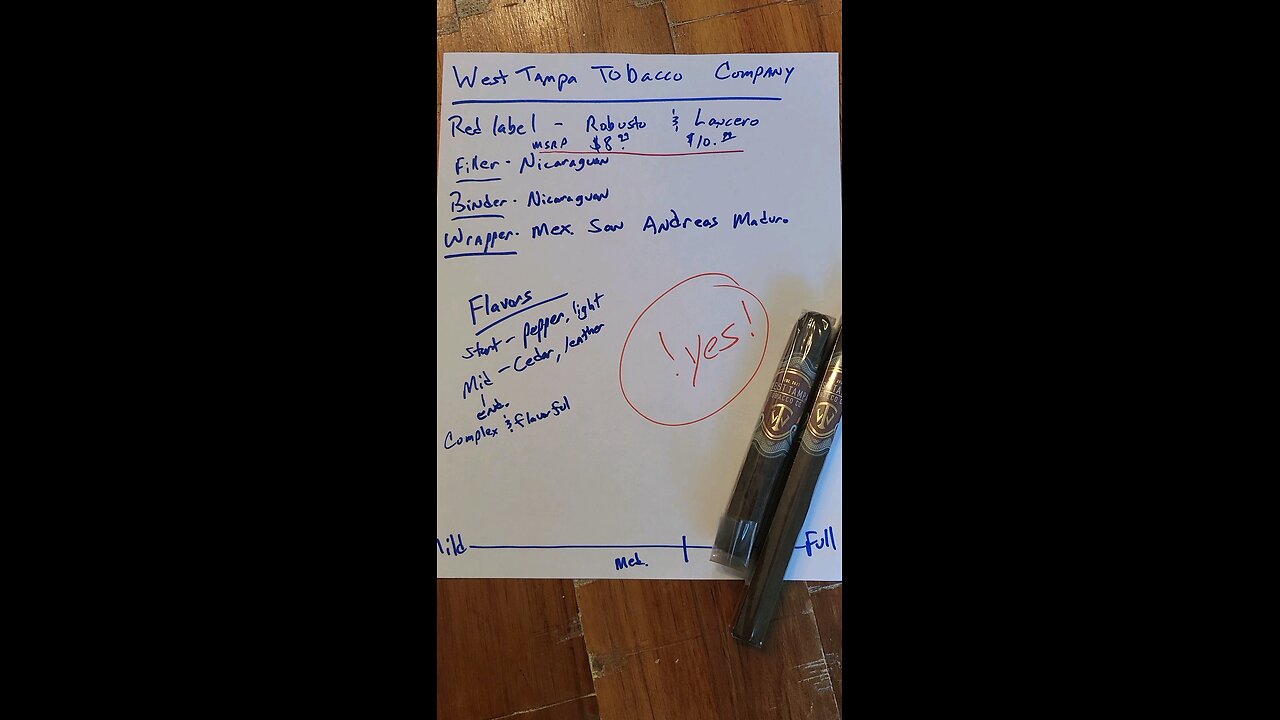 West Tampa Tobacco Company
Red label - Robusto & Lancero
MSRP $8.99 $10.99
Filler - Nicaraguan
Binder - Nicaraguan
Wrapper - Mex. San Andreas Maduro
Flavors
Start - pepper, light
Mid - Cedar, leather
&
end.
Complex & flavorful
!yes!
WEST TAMPA
TOBACCO CO
Mild
Med.
Full